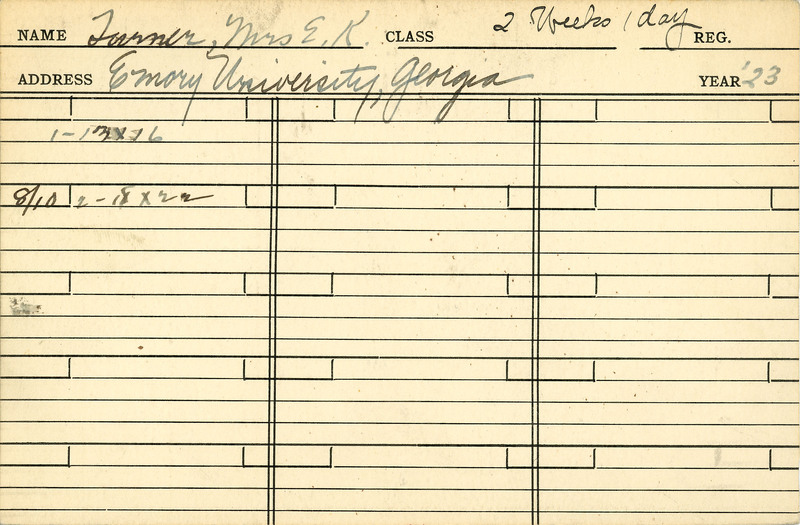 NAME Turner, Mrs E. K. CLASS 2 Weeks 1 day REG.
ADDRESS Emory University, Georgia YEAR '23
8/10 2 - 18 x 22